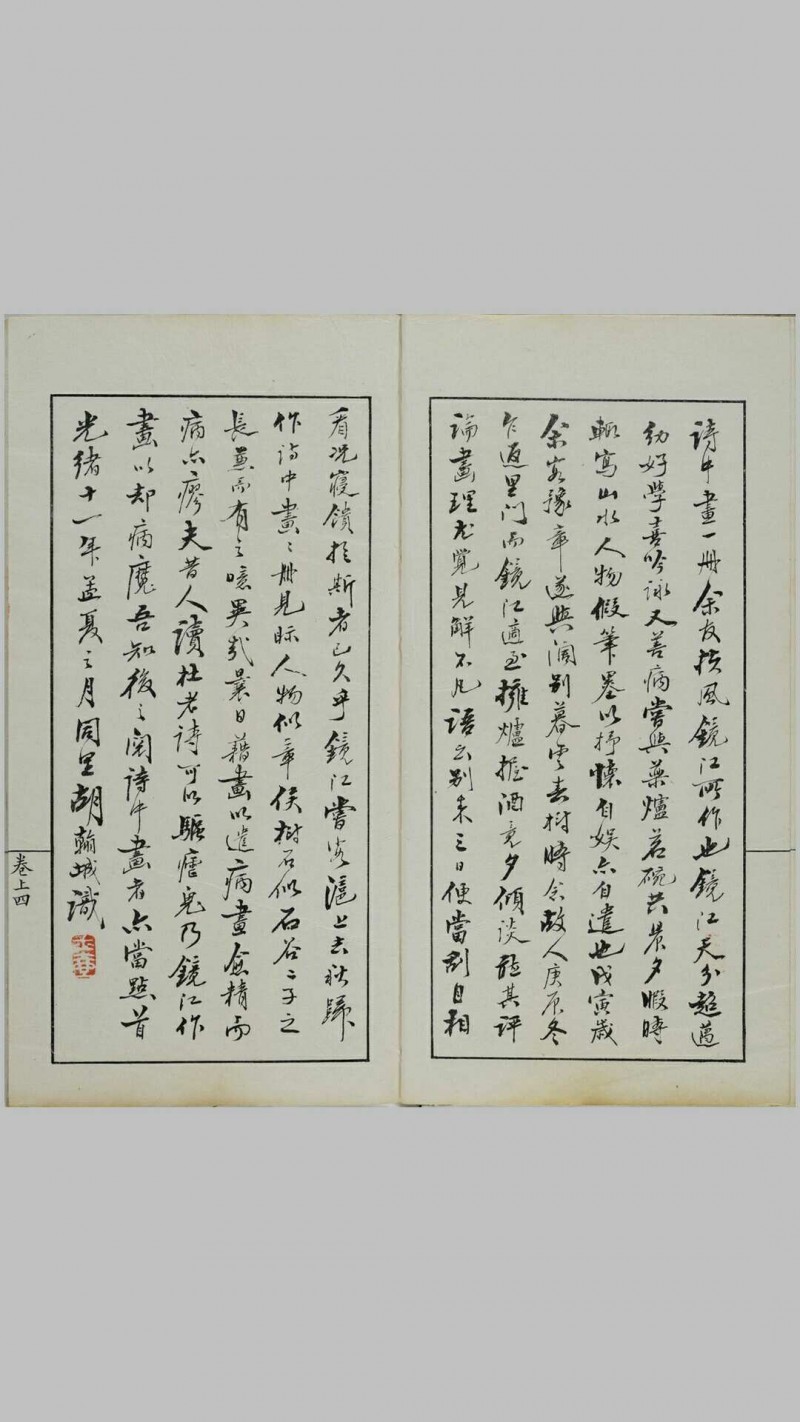 詩中畫一冊余友扶風鏡江所作也鏡江天分超邁
幼好學喜吟詠又善病嘗與藥爐茗碗共晨夕暇時
輒寫山水人物假筆墨以抒懷自娛亦自遣也戊寅歲
余客豫章遂與闊別暮雲春樹時念故人庚辰冬
乍返里門而鏡江適至擁爐握酒竟夕傾談聆其評
論畫理尤覺見解不凡語云別來三日便當刮目相
看況寢饋於斯者已久乎鏡江嘗客滬上去秋歸
作詩中畫之冊見眎人物似章侯樹石似石谷二子之
長兼而有之噫異哉曩日藉畫以遣病畫愈精而
病亦瘳夫昔人讀杜老詩可以驅瘧鬼乃鏡江作
畫以却病魔吾知後之閱詩中畫者亦當點首
光緒十一年孟夏之月同里胡翰城識
卷上四